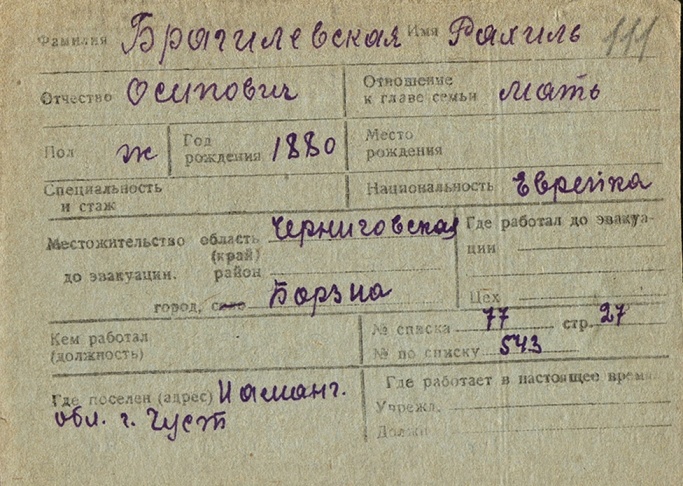 Фамилия Брагилевская Имя Рахиль 111
Отчество Осипович Отношение к главе семьи мать
Пол ж Год рождения 1880 Место рождения
Специальность и стаж Национальность Еврейка
Местожительство область Черниговская Где работал до эвакуа-
(край) ции
до эвакуации. район
город, село Борзна Цех
Кем работал № списка 77 стр. 27
(должность) № по списку 543
Где поселен (адрес) Наманг. Где работает в настоящее время
обл. г. Чуст Учрежд.
Должн